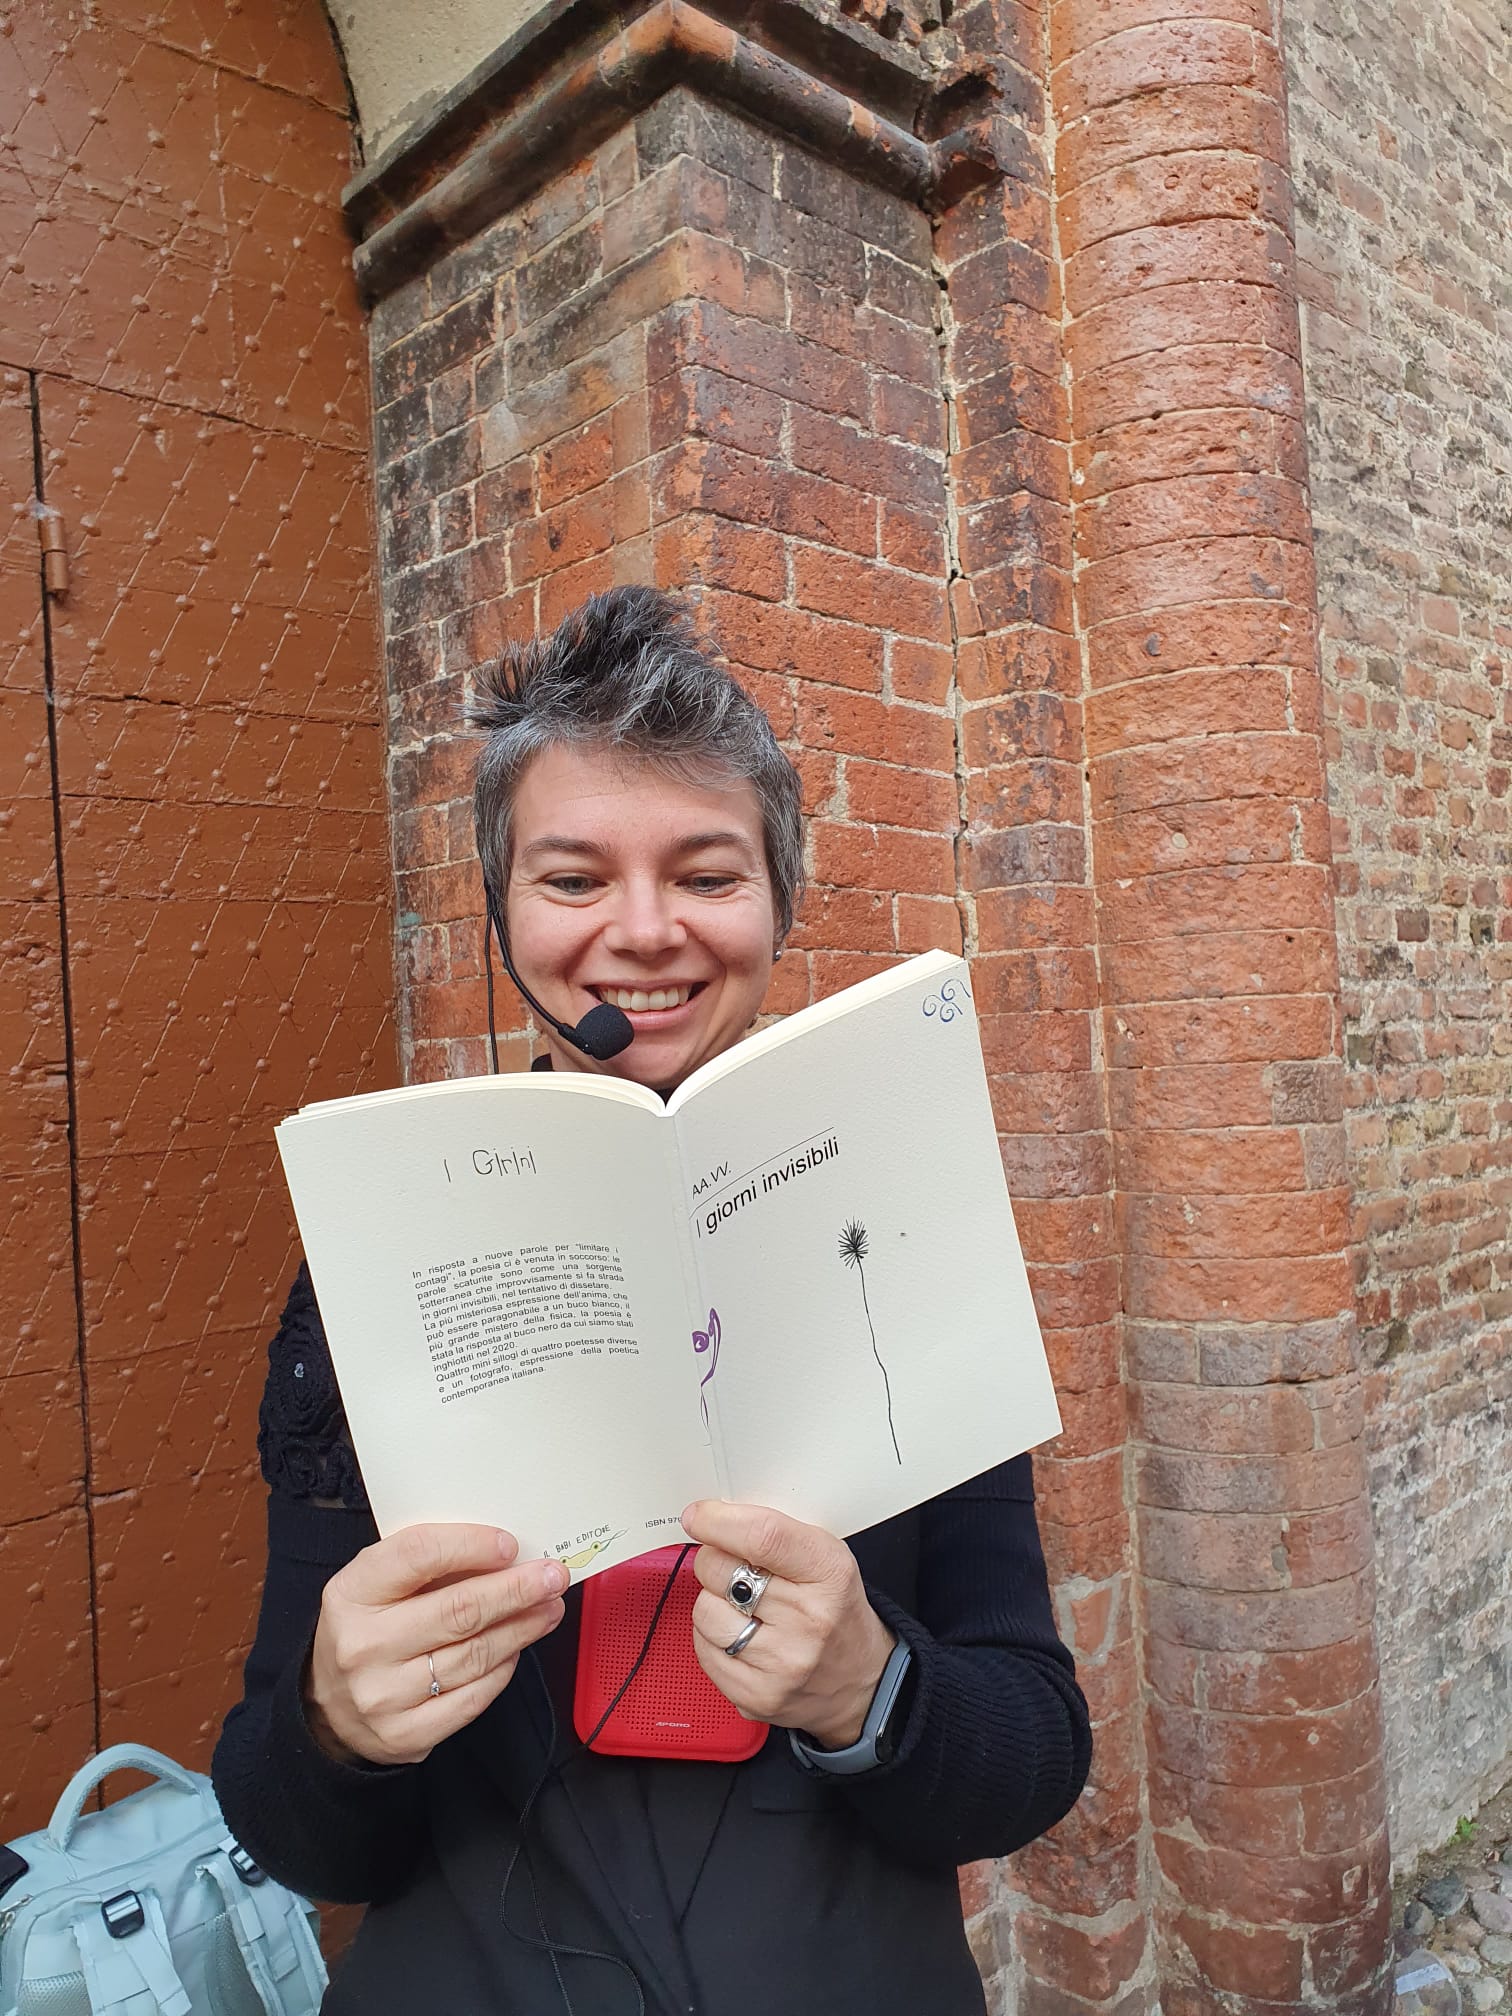 I G|r|n|
In risposta a nuove parole per "limitare i
contagi", la poesia ci è venuta in soccorso: le
parole scaturite sono come una sorgente
sotterranea che improvvisamente si fa strada
in giorni invisibili, nel tentativo di dissetare.
La più misteriosa espressione dell'anima, che
può essere paragonabile a un buco bianco, il
più grande mistero della fisica, la poesia è
stata la risposta al buco nero da cui siamo stati
inghiottiti nel 2020.
Quattro mini sillogi di quattro poetesse diverse
e un fotografo, espressione della poetica
contemporanea italiana.
IL BABI EDITORE
ISBN 979
AA.VV.
I giorni invisibili
APORO